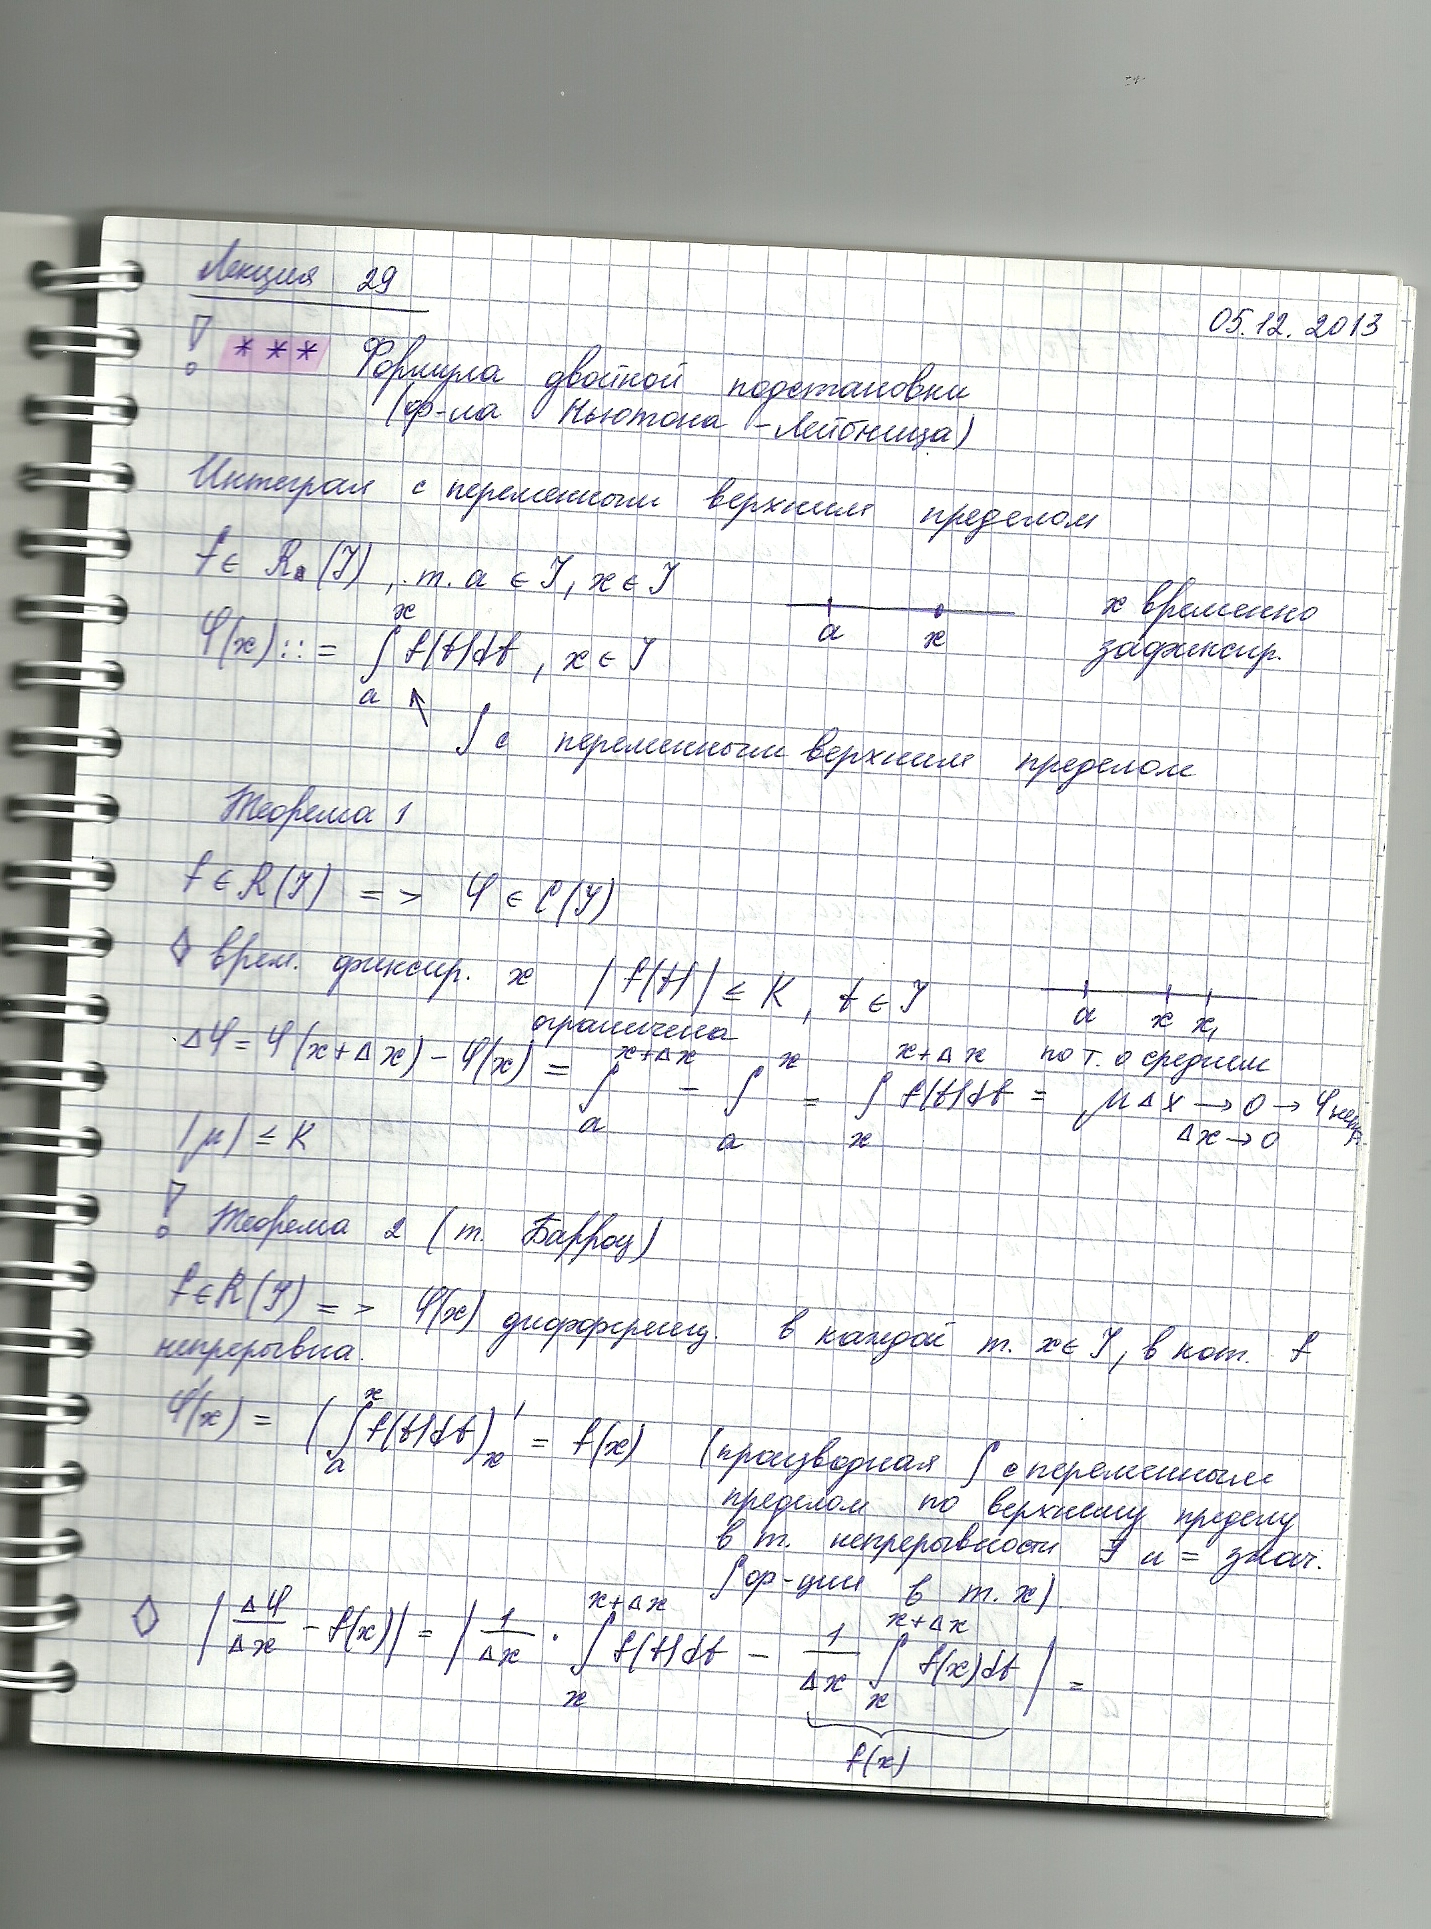 Лекция 29
05.12.2013
! *** Формула двойной подстановки
(ф-ла Ньютона - Лейбница)
Интеграл с переменным верхним пределом
f ∈ R (J), т. a ∈ J, x ∈ J
a x
x временно
зафиксир.
φ(x) ::= ∫ₐˣ f(t)dt, x ∈ J
∫ с переменным верхним пределом
Теорема 1
f ∈ R(J) => φ ∈ C(J)
◊ врем. фиксир. x |f(t)| ≤ K, t ∈ J
ограничена
a x x₁
Δφ = φ(x+Δx) - φ(x) = ∫ₐˣ⁺ᐃˣ - ∫ₐˣ = ∫ₓˣ⁺ᐃˣ f(t)dt = μΔx → 0 → φ непр.
по т. о среднем
Δx → 0
|μ| ≤ K
! Теорема 2 (т. Барроу)
f ∈ R(J) => φ(x) дифференц. в каждой т. x ∈ J, в кот. f
непрерывна.
φ'(x) = (∫ₐˣ f(t)dt)'ₓ = f(x) (производная ∫ с переменным
пределом по верхнему пределу
в т. непрерывности ∃ и = знач.
∫ ф-ции в т. x)
◊ |Δφ/Δx - f(x)| = |1/Δx · ∫ₓˣ⁺ᐃˣ f(t)dt - 1/Δx ∫ₓˣ⁺ᐃˣ f(x)dt| =
f(x)